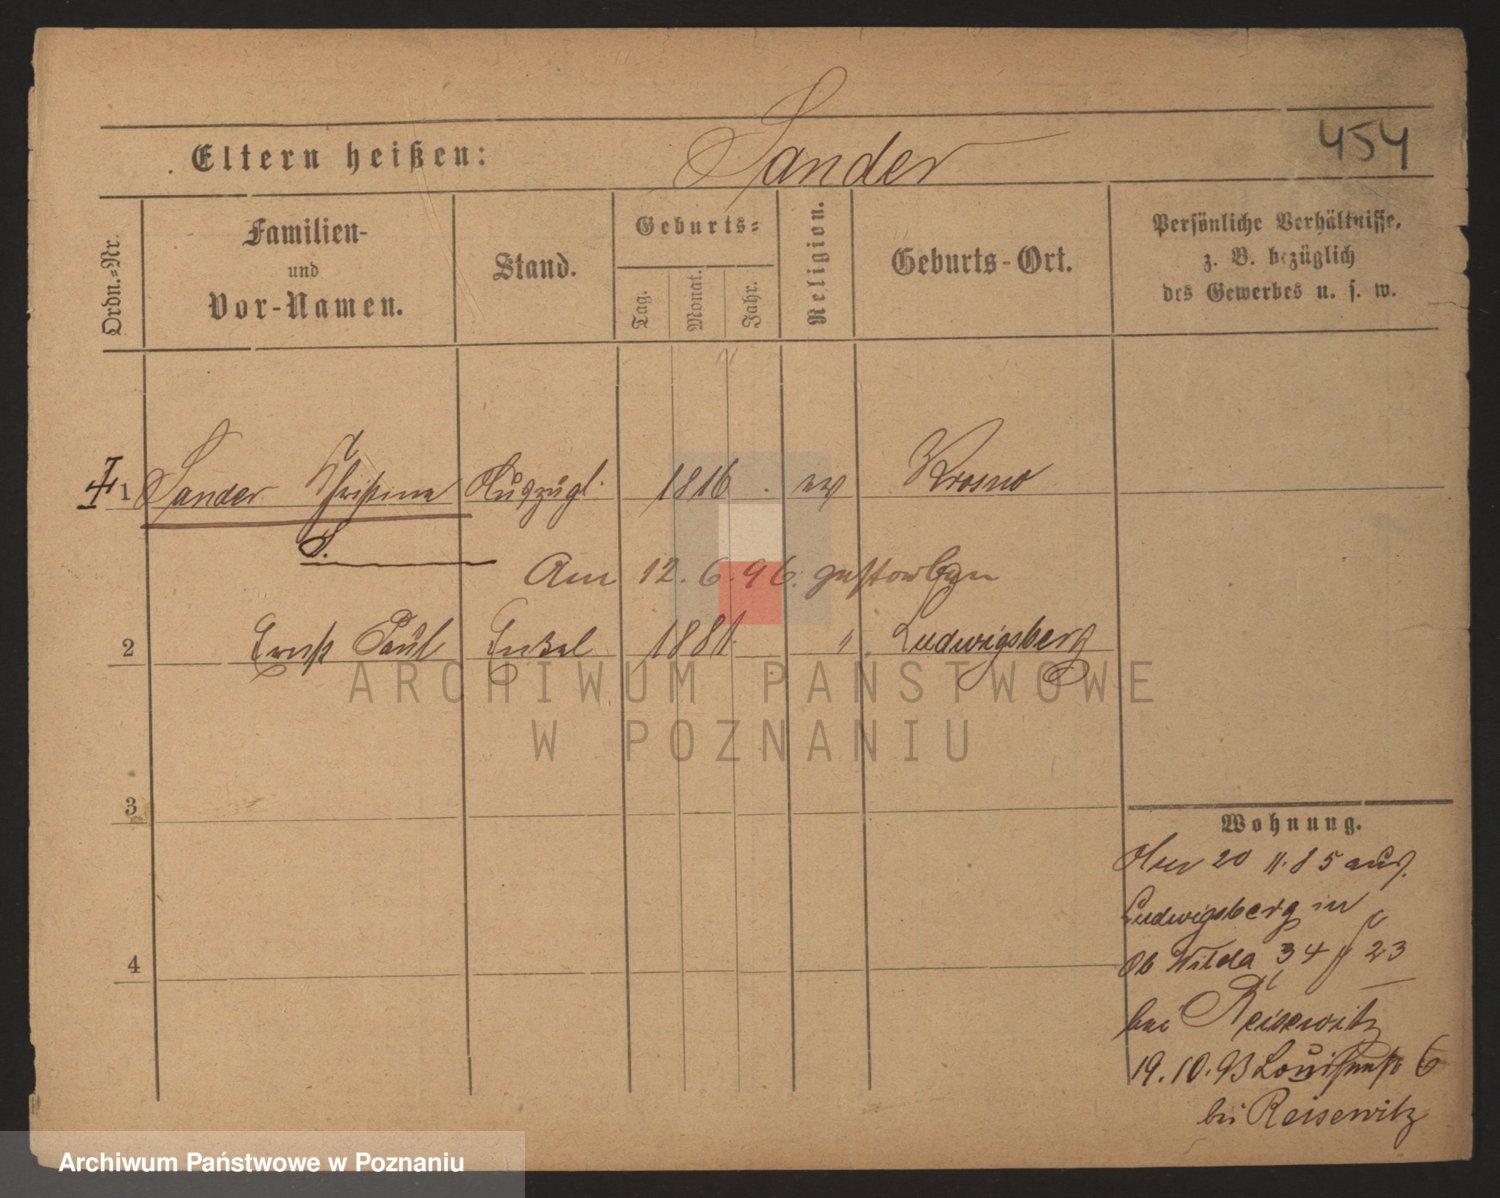 454
Eltern heißen: Sander
Ordn.=Nr.
Familien-
und
Vor-Namen.
Stand.
Geburts=
Tag.
Monat.
Jahr.
Religion.
Geburts-Ort.
Persönliche Verhältnisse,
z. B. bezüglich
des Gewerbes u. s. w.
1 Sander Christina Auszügl. 1816 ev Krosno
Am 12.6.96. gestorben
2 Ernst Paul Enkel 1881. " Ludwigsberg
ARCHIWUM PAŃSTWOWE
W POZNANIU
3
4
Wohnung.
20 11.85 aus
Ludwigsberg in
Ob Wilda 34 23
bei Reisewitz
19.10.93 Louisenstr 6
bei Reisewitz
Archiwum Państwowe w Poznaniu